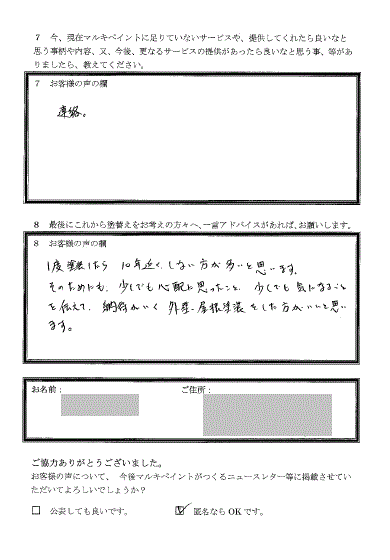 7 今、現在マルキペイントに足りていないサービスや、提供してくれたら良いなと
思う事柄や内容、又、今後、更なるサービスの提供があったら良いなと思う事、等があ
りましたら、教えてください。
7 お客様の声の欄
連絡。
8 最後にこれから塗替えをお考えの方々へ、一言アドバイスがあれば、お願いします。
8 お客様の声の欄
1度塗装したら 10年近くしない方が多いと思います。
そのためにも、少しでも心配に思ったこと、少しでも気になること
を伝えて、納得がいく外壁・屋根塗装をした方がいいと思い
ます。
お名前: ご住所:
ご協力ありがとうございました。
お客様の声について、今後マルキペイントがつくるニュースレター等に掲載させてい
ただいてよろしいでしょうか?
□ 公表しても良いです。 ☑ 匿名ならOKです。